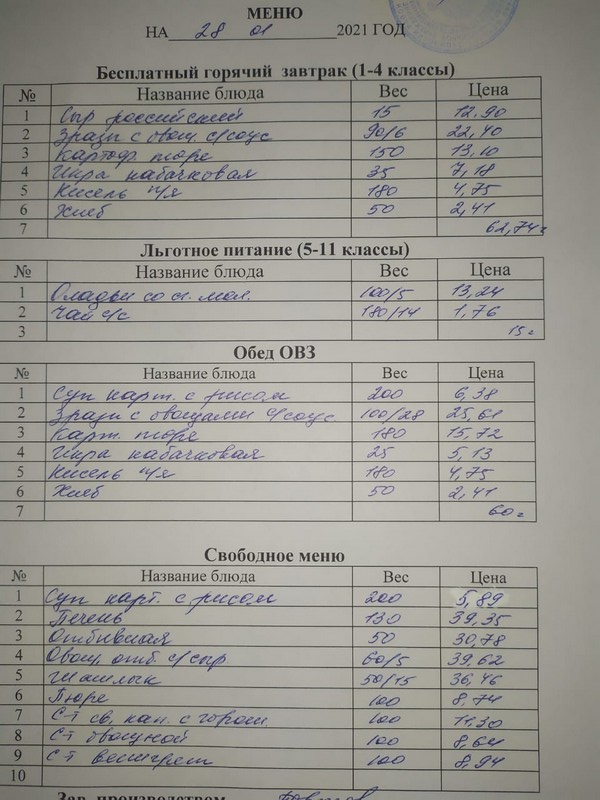 МЕНЮ
НА 28 01 2021 ГОД
Бесплатный горячий завтрак (1-4 классы)
№ Название блюда Вес Цена
1 Сыр российский 15 12,90
2 Зразы с овощ. с/соус 90/6 22,40
3 Картоф. пюре 150 13,10
4 Икра кабачковая 35 7,18
5 Кисель п/я 180 4,75
6 Хлеб 50 2,41
7 62,74
Льготное питание (5-11 классы)
№ Название блюда Вес Цена
1 Оладьи со сг. мол. 100/5 13,24
2 Чай с/с 180/14 1,76
3 15
Обед ОВЗ
№ Название блюда Вес Цена
1 Суп карт. с рисом 200 6,38
2 Зразы с овощами с/соус 100/28 25,61
3 Карт. пюре 180 15,72
4 Икра кабачковая 25 5,13
5 Кисель п/я 180 4,75
6 Хлеб 50 2,41
7 60
Свободное меню
№ Название блюда Вес Цена
1 Суп карт. с рисом 200 5,89
2 Печень 130 39,35
3 Отбивная 50 30,78
4 Овощ. отб. с/сыр 60/5 39,62
5 Шашлык 50/15 36,46
6 Пюре 100 8,74
7 С-т св. кап. с горош. 100 11,30
8 С-т овощной 100 8,64
9 С-т винегрет 100 8,94
10
Зав. производством